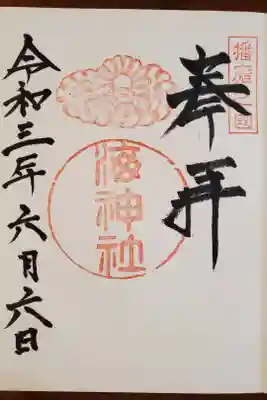 播磨 國
奉拝
海神社
令和三年六月六日